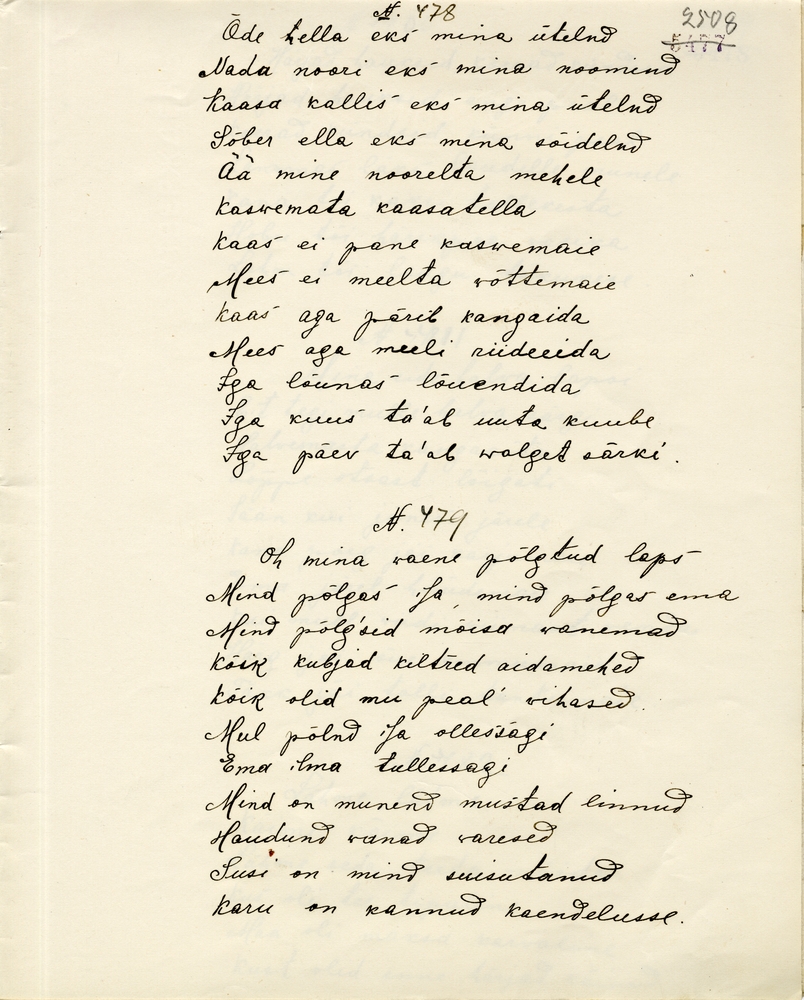 N. 478
2508
5477
Õde hella eks mina ütelnd
Nada noori eks mina noomind
Kaasa kallis eks mina ütelnd
Sõber ella eks mina sõidelnd
Ää mine noorelta mehele
Kaswemata kaasatella
Kaas ei pane kaswemaie
Mees ei meelta wõttemaie
Kaas aga pärib kangaida
Mees aga meeli riideeida
Iga lõunas lõuendida
Iga kuus ta'ab uuta kuube
Iga päev ta'ab walget särki.
N. 479
Oh mina waene põlgtud laps
Mind põlgas isa, mind põlgas ema
Mind põlg'sid mõisa wanemad
Kõik kubjad kiltred aidamehed
Kõik olid mu peal' wihased.
Mul põlnd isa ollessagi
Ema ilma tullessagi
Mind on munend mustad linnud
Haudund wanad waresed
Susi on mind suisutanud
Karu on kannud kaendelusse.